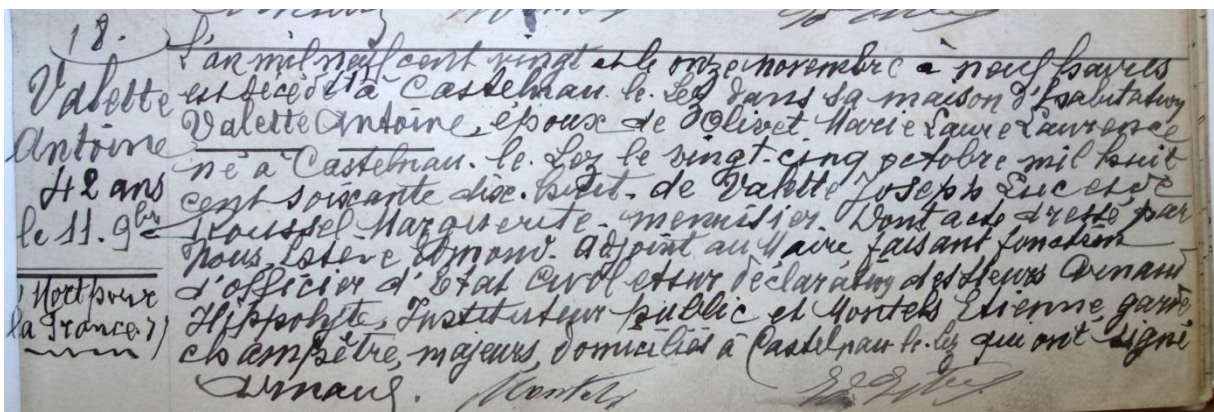 18.
Valette
Antoine
42 ans
le 11. 9bre
"Mort pour
la France"
L'an mil neuf cent vingt et le onze novembre à neuf heures
est décédé à Castelnau. le. Lez dans sa maison d'habitation
Valette Antoine, époux de Olivet Marie Laure Laurence
né à Castelnau. le. Lez le vingt-cinq octobre mil huit
cent soixante dix. huit. de Valette Joseph Luc et de
Roussel Marguerite. menuisier. Dont acte dressé par
Nous, Estève Edmond. Adjoint au Maire faisant fonction
d'officier d'Etat Civil et sur déclaration des sieurs Arnaud
Hippolyte, Instituteur public et Montels Etienne garde
champêtre, majeurs, domiciliés à Castelnau. le. lez qui ont signé
Arnaud. Montels